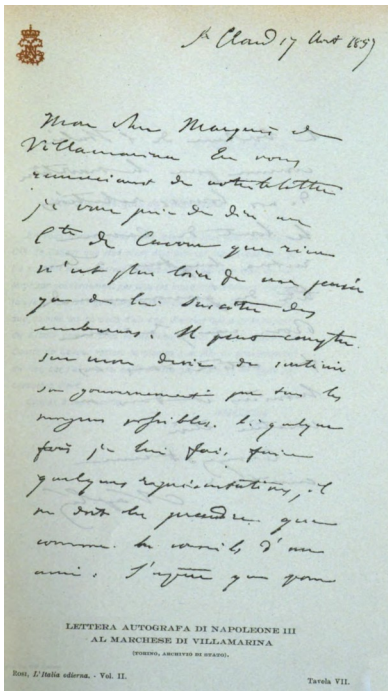 St Cloud 17 Avt 1857
Mon cher Marquis de
Villamarina En vous
remerciant de votre lettre
je vous prie de dire au
Cte de Cavour que rien
n'est plus loin de ma pensée
que de lui susciter des
embarras. Il peut compter
sur mon désir de soutenir
son gouvernement par tous les
moyens possibles. Si quelque
fois je lui fais faire
quelques représentations, il
ne doit les prendre que
comme les conseils d'un
ami. J'espère que
LETTERA AUTOGRAFA DI NAPOLEONE III
AL MARCHESE DI VILLAMARINA
(TORINO, ARCHIVIO DI STATO).
L'Italia odierna. - Vol. II.
Tavola VII.